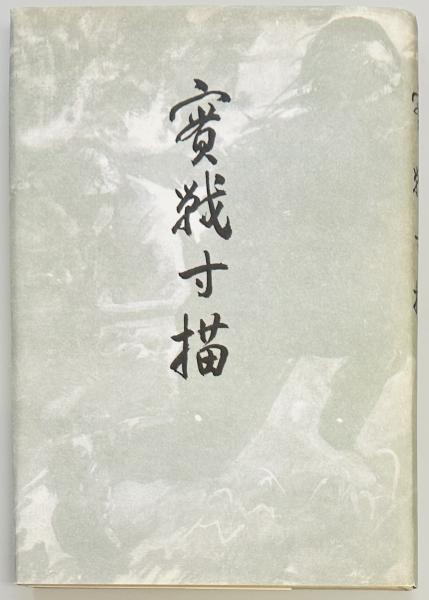 實戦寸描